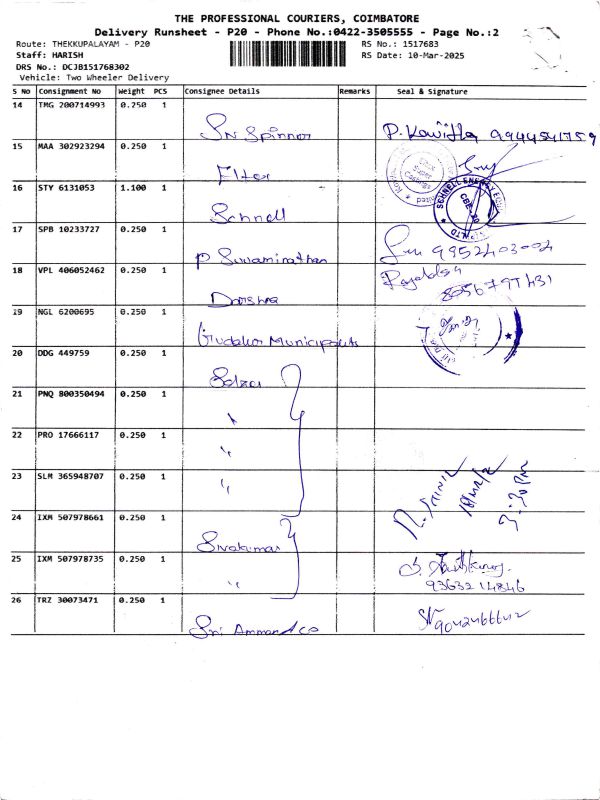 THE PROFESSIONAL COURIERS, COIMBATORE
Delivery Runsheet - P20 - Phone No.:0422-3505555 - Page No.:2
Route: THEKKUPALAYAM - P20
RS No.: 1517683
Staff: HARISH
RS Date: 10-Mar-2025
DRS No.: DCJB151768302
Vehicle: Two Wheeler Delivery
S No Consignment No Weight PCS Consignee Details Remarks Seal & Signature
14 TMG 200714993 0.250 1
Sri Spinner P. Kavitha 9944541759
15 MAA 302923294 0.250 1
Elter
16 STY 6131053 1.100 1
Schnell SCHNELL ENERGY
17 SPB 10233727 0.250 1
P Suwaminathan 9952403004
18 VPL 406052462 0.250 1
Darshna
19 NGL 6200695 0.250 1
Gudalur Municipality
20 DDG 449759 0.250 1
Selzer
21 PNQ 800350494 0.250 1
"
22 PRO 17666117 0.250 1
"
23 SLM 365948707 0.250 1
"
24 IXM 507978661 0.250 1
Sivakumar
25 IXM 507978735 0.250 1
" 9363214846
26 TRZ 30073471 0.250 1
Sri Ammand co